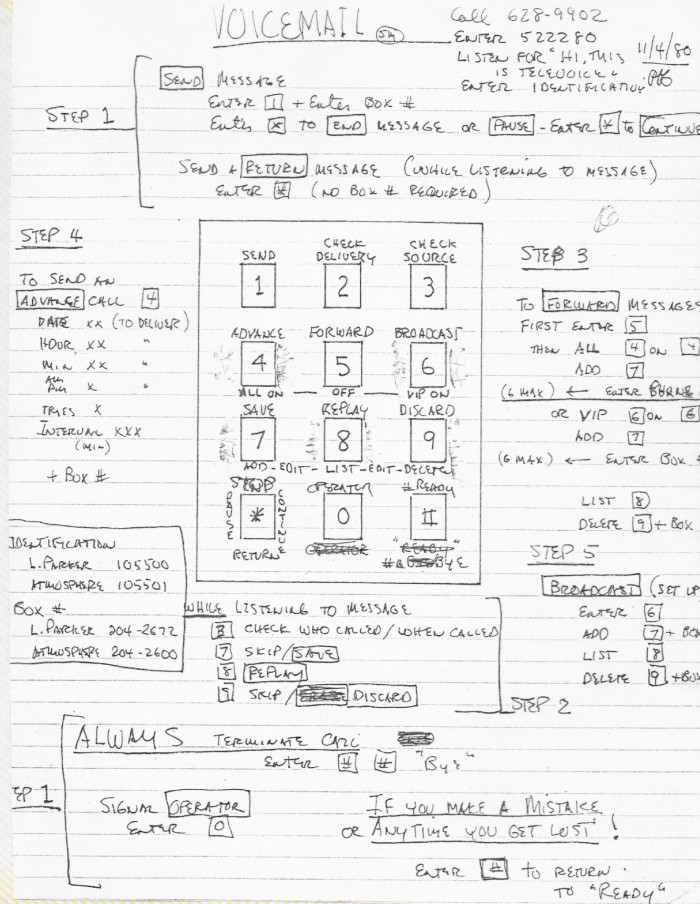 VOICEMAIL
Call 628-9902
ENTER 522280
LISTEN FOR "HI, THIS
IS TELEVOICE"
ENTER IDENTIFICATION
11/4/80
STEP 1
SEND MESSAGE
ENTER 1 + Enter BOX #
Enter * TO END MESSAGE OR PAUSE - ENTER * to CONTINUE
SEND A RETURN MESSAGE (WHILE LISTENING TO MESSAGE)
ENTER * (NO BOX # REQUIRED)
STEP 4
TO SEND AN
ADVANCE CALL 4
DATE XX (TO DELIVER)
HOUR XX "
MIN XX "
AM
PM X "
TRIES X
INTERVAL XXX
(MIN)
+ BOX #
SEND
1
CHECK
DELIVERY
2
CHECK
SOURCE
3
ADVANCE
4
FORWARD
5
BROADCAST
6
ALL ON — OFF — VIP ON
SAVE
7
REPLAY
8
DISCARD
9
ADD - EDIT - LIST - EDIT - DELETE
STOP
PAUSE
*
CONTINUE
RETURN
OPERATOR
0
OPERATOR
#READY
#
"READY"
# BYE
STEP 3
TO FORWARD MESSAGES
FIRST ENTER 5
THEN ALL 4 ON 4
ADD 7
(6 MAX) ← ENTER
OR VIP 6 ON 6
ADD 7
(6 MAX) ← ENTER BOX #
LIST 8
DELETE 9 + BOX
STEP 5
BROADCAST (SET UP
ENTER 6
ADD 7 + BOX
LIST 8
DELETE 9 + BOX
IDENTIFICATION
L. PARKER 105500
ATMOSPHERE 105501
BOX #
L. PARKER 204-2672
ATMOSPHERE 204-2600
WHILE LISTENING TO MESSAGE
3 CHECK WHO CALLED / WHEN CALLED
7 SKIP / SAVE
8 REPLAY
9 SKIP / ERASE DISCARD
STEP 2
EP 1
ALWAYS TERMINATE CALL
ENTER # # "BYE"
SIGNAL OPERATOR
ENTER 0
IF YOU MAKE A MISTAKE
OR ANYTIME YOU GET LOST!
ENTER # to RETURN
TO "READY"